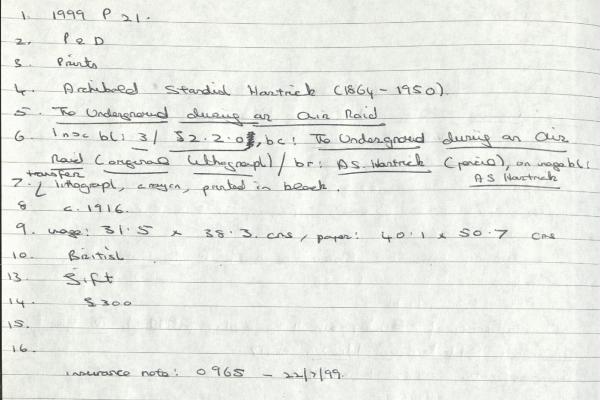 1. 1999 P 21.
2. P & D
3. Prints
4. Archibald Standish Hartrick (1864 - 1950).
5. The Underground during an Air Raid
6. Insc bl: 3/ £2.2.0, bc: The Underground during an Air
Raid (original lithograph)/ br: AS. Hartrick (pencil), on image bl:
AS Hartrick
transfer
7. lithograph, crayon, printed in black.
8 c. 1916.
9. image: 31.5 x 38.3. cms, paper: 40.1 x 50.7 cms
10. British
13. Gift
14. £300
15.
16.
insurance note: 0965 - 22/7/99.